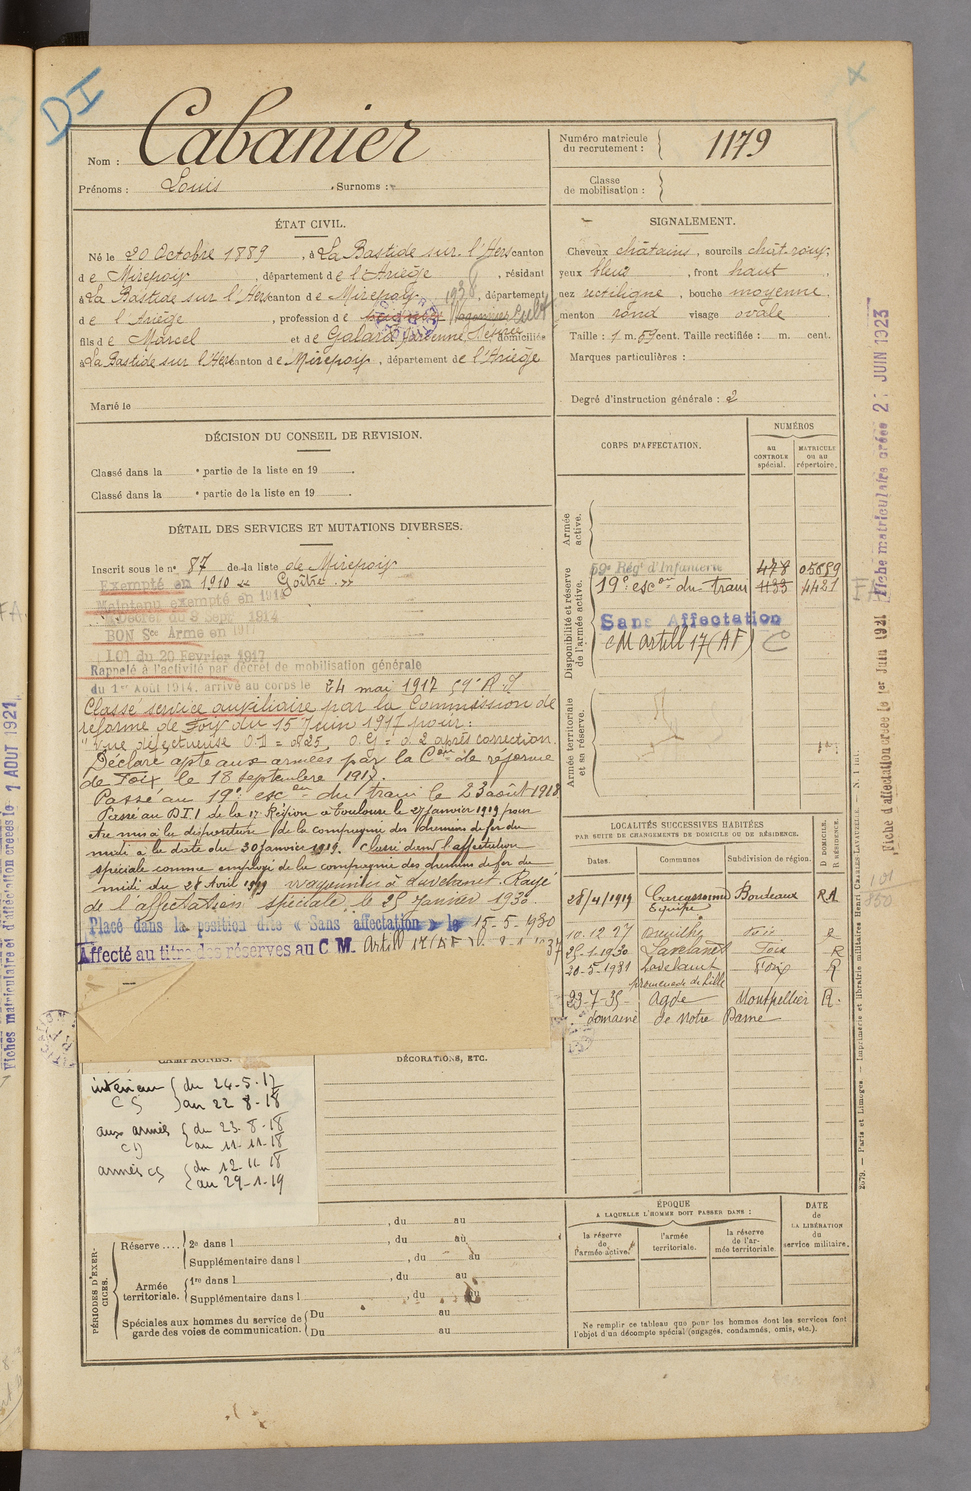 DI
Nom : Cabanier
Prénoms : Louis . Surnoms : "
Numéro matricule du recrutement : 1179
Classe de mobilisation :
ÉTAT CIVIL.
Né le 20 Octobre 1889, à La Bastide sur l'Hers canton
de Mirepoix, département de l'Ariège, résidant
à La Bastide sur l'Hers canton de Mirepoix, département
1938
de l'Ariège, profession de Cult
fils de Marcel et de Galard domiciliés
à La Bastide sur l'Hers canton de Mirepoix, département de l'Ariège
Marié le
SIGNALEMENT.
Cheveux châtains, sourcils chât roux,
yeux bleus, front haut,
nez rectiligne, bouche moyenne,
menton rond visage ovale
Taille : 1 m. 59 cent. Taille rectifiée : m. cent.
Marques particulières :
Degré d'instruction générale : 2
DÉCISION DU CONSEIL DE REVISION.
Classé dans la e partie de la liste en 19 .
Classé dans la e partie de la liste en 19 .
DÉTAIL DES SERVICES ET MUTATIONS DIVERSES.
Inscrit sous le n° 87 de la liste de Mirepoix
Exempté en 1910 Goître
Maintenu exempté en 1914
Décret du 9 Sept 1914
BON Sce Armé en 1917
Loi du 20 Février 1917
Rappelé à l'activité par décret de mobilisation générale
du 1er Août 1914, arrivé au corps le 24 mai 1917 59e R.I
Classé service auxiliaire par la Commission de
réforme de Foix du 15 Juin 1917 pour :
"Vue défectueuse O.D = 0.25 O.G = 0.2 après correction.
Déclaré apte aux armées par la Con de réforme
de Foix le 18 septembre 1917.
Passé au 19e escon du train le 23 août 1918
Passé au D.T.I de la 17 Région à Toulouse le 27 janvier 1919 pour
être mis à la disposition de la compagnie des chemins de fer du
midi à la date du 30 janvier 1919. Classé dans l'affectation
spéciale comme employé de la compagnie des chemins de fer du
midi du 28 Avril 1919 wagonnier à Lavelanet. Rayé
de l'affectation spéciale, le 25 Janvier 1930.
Placé dans la position dite « Sans affectation » le 15-5-930
Affecté au titre des réserves au C M. Artill 17 (AF
CORPS D'AFFECTATION.
NUMÉROS
au CONTROLE spécial.
MATRICULE ou au répertoire.
Armée active.
Disponibilité et réserve de l'armée active.
59e Régt d'Infanterie 478 05689
19e escon du train 1133 4421
Sans Affectation
C M Artill 17 (AF) C
Armée territoriale et sa réserve.
LOCALITÉS SUCCESSIVES HABITÉES
PAR SUITE DE CHANGEMENTS DE DOMICILE OU DE RÉSIDENCE.
Dates. Communes Subdivision de région. D DOMICILE. R RÉSIDENCE.
28/4/1919 Carcassonne Bordeaux RA
Equipe
10.12.27 Foix R
25-1-1930 Lavelanet Foix R
20-5-1931 Lavelanet Foix R
promenade de Lille
23-7-35- Agde Montpellier R.
domaine de Notre Dame
CAMPAGNES.
DÉCORATIONS, ETC.
intérieur { du 24-5-17
CS } au 22 8-18
aux armées { du 23-8-18
CD { au 11-11-18
armées CS { du 12-11-18
{ au 29-1-19
, du au
PÉRIODES D'EXERCICES.
Réserve .... { 2e dans l , du au
Supplémentaire dans l , du au
Armée territoriale. { 1re dans l , du au
Supplémentaire dans l , du au
Spéciales aux hommes du service de garde des voies de communication. { Du au
Du au
ÉPOQUE
A LAQUELLE L'HOMME DOIT PASSER DANS :
la réserve de l'armée active.
l'armée territoriale.
la réserve de l'armée territoriale.
DATE de LA LIBÉRATION du service militaire.
Ne remplir ce tableau que pour les hommes dont les services font
l'objet d'un décompte spécial (engagés, condamnés, omis, etc.).
Fiche matriculaire créée 2 JUIN 1923
Fiche d'affectation créée le 1er Juin 1921
101
850
2579. — Paris et Limoges. — Imprimerie et librairie militaires Henri CHARLES-LAVAUZELLE. —
Fiches matriculaire et d'affectation créées le 1 AOUT 1921